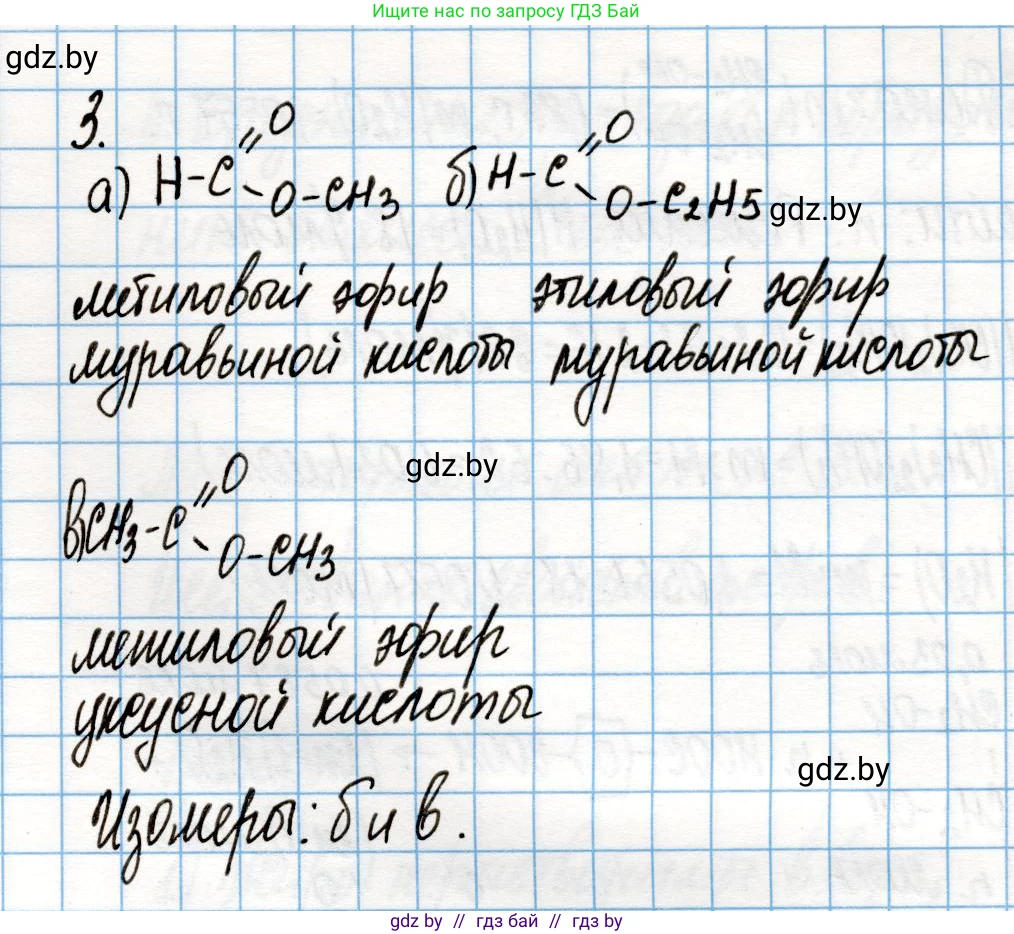 Ищите нас по запросу ГДЗ Бай
gdz.by
3.
а) H-C =O O-CH3 б) H-C =O O-C2H5
gdz.by
метиловый эфир этиловый эфир
муравьиной кислоты муравьиной кислоты
gdz.by
в) CH3-C =O O-CH3
метиловый эфир
уксусной кислоты
gdz.by
Изомеры: б и в.
gdz by // гдз бай // гдз by